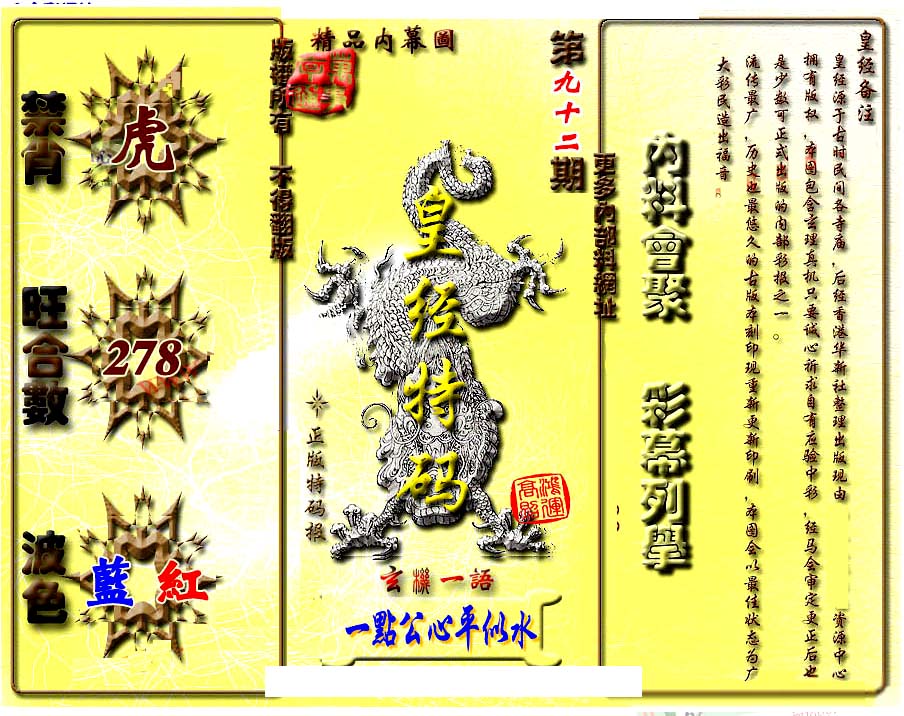 精品内幕圖
版權所有 不得翻版
第九十二期
更多內部料網址
禁肖
虎
旺合數
278
波色
藍 紅
皇经特码
正版特码报
鴻運高照
玄機一語
一點公心平似水
內料會聚
彩幕列舉
皇经备注
皇经源于古时民间各寺庙，后经香港华新社整理出版现由 资源中心
拥有版权，本图包含玄理真机只要诚心祈求自有应验中彩，经马会审定更正后也
是少数可正式出版的内部彩报之一。
流传最广，历史也最悠久的古版本刻印现重新更新印刷，本图会以最佳状态为广
大彩民造出福音